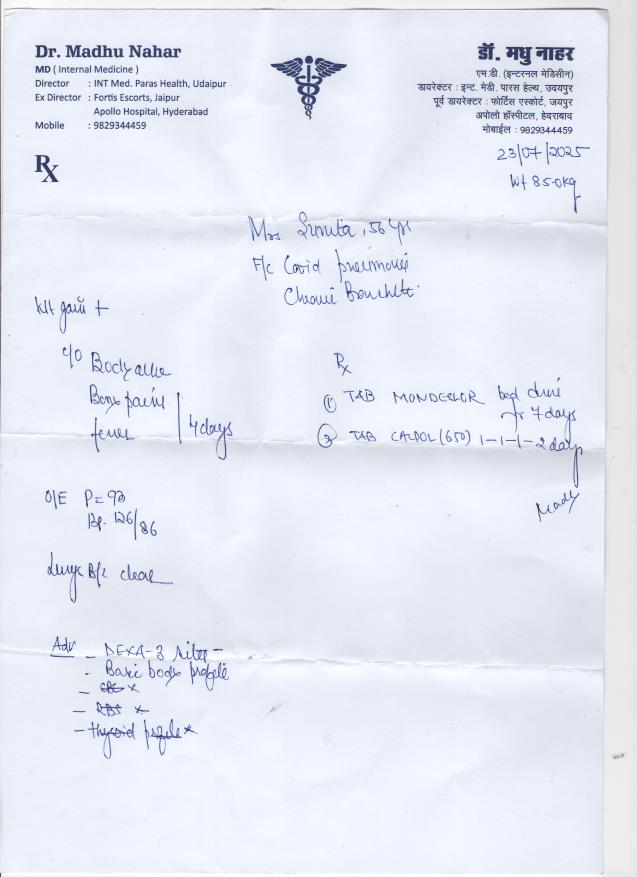 Dr. Madhu Nahar
MD ( Internal Medicine )
Director : INT Med. Paras Health, Udaipur
Ex Director : Fortis Escorts, Jaipur
Apollo Hospital, Hyderabad
Mobile : 9829344459
डॉ. मधु नाहर
एम.डी. (इन्टरनल मेडिसीन)
डायरेक्टर : इन्ट. मेडी. पारस हेल्थ, उदयपुर
पूर्व डायरेक्टर : फोर्टिस एस्कोर्ट, जयपुर
अपोलो हॉस्पीटल, हेदराबाद
मोबाईल : 9829344459
Rx
23/07/2025
Wt 85.0kg
Mrs Sunita, 56 yr
F/c Covid pneumonia
Chronic
Wt gain +
c/o Bodyache
Bony pains
fever
7 days
O/E P = 93
Bp. 126/86
Lungs B/L clear
Rx
① TAB MONDESLOR bed time
for 7 days
② TAB CALPOL (650) 1-1-1- 2 days
Adv - DEXA-3 sites -
- Basic body profile
- CBC x
- RBS x
- Thyroid profile x